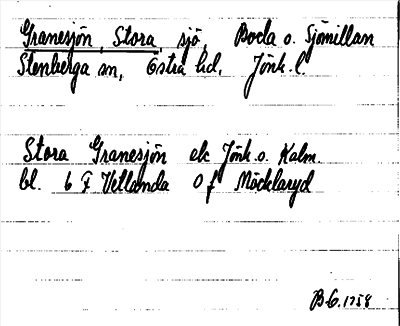 Granesjön, Stora, sjö, Boda o. Sjömillan
Stenberga sn, Östra hd, Jönk. l.
Stora Granesjön ek Jönk. o. Kalm.
bl. 6 F Vetlanda 0 f Möcklaryd
B-G. 1758